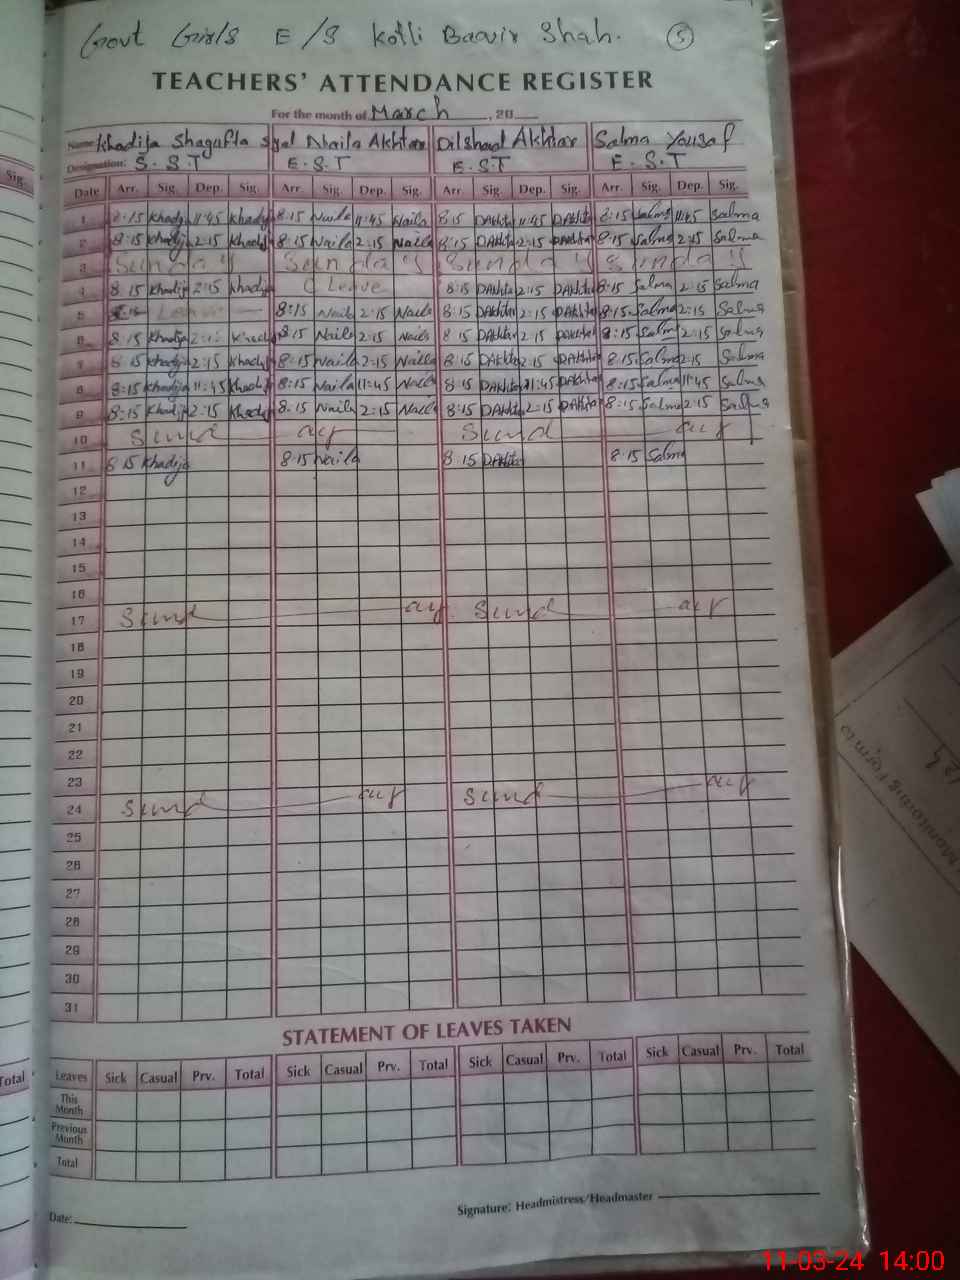 Govt Girls E/S Kotli Baavir Shah. 5
TEACHERS' ATTENDANCE REGISTER
For the month of March, 20
Name Khadija Shagufta Syal Naila Akhtar Dilshad Akhtar Salma Yousaf
Designation: S.S.T E.S.T E.S.T E.S.T
Sig. Date Arr. Sig. Dep. Sig. Arr. Sig. Dep. Sig. Arr. Sig. Dep. Sig. Arr. Sig. Dep. Sig.
1 8:15 Khadija 11:45 Khadija 8:15 Naila 11:45 Naila 8:15 DAkhtar 11:45 DAkhtar 8:15 Salma 11:45 Salma
2 8:15 Khadija 2:15 Khadija 8:15 Naila 2:15 Naila 8:15 DAkhtar 2:15 DAkhtar 8:15 Salma 2:15 Salma
3 Sunday Sunday Sunday Sunday
4 8:15 Khadija 2:15 Khadija C Leave 8:15 DAkhtar 2:15 DAkhtar 8:15 Salma 2:15 Salma
5 Leave 8:15 Naila 2:15 Naila 8:15 DAkhtar 2:15 DAkhtar 8:15 Salma 2:15 Salma
6 8:15 Khadija Khadija 8:15 Naila 2:15 Naila 8:15 DAkhtar 2:15 DAkhtar 8:15 Salma 2:15 Salma
7 8:15 Khadija 2:15 Khadija 8:15 Naila 2:15 Naila 8:15 DAkhtar 2:15 DAkhtar 8:15 Salma 2:15 Salma
8 8:15 Khadija 11:45 Khadija 8:15 Naila 11:45 Naila 8:15 DAkhtar 11:45 DAkhtar 8:15 Salma 11:45 Salma
9 8:15 Khadija 2:15 Khadija 8:15 Naila 2:15 Naila 8:15 DAkhtar 2:15 DAkhtar 8:15 Salma 2:15 Salma
10 Sund ay Sund ay
11 8:15 Khadija 8:15 Naila 8:15 DAkhtar 8:15 Salma
12
13
14
15
16
17 Sund ay Sund ay
18
19
20
21
22
23
24 Sund ay Sund ay
25
26
27
28
29
30
31
STATEMENT OF LEAVES TAKEN
Total Leaves Sick Casual Prv. Total Sick Casual Prv. Total Sick Casual Prv. Total Sick Casual Prv. Total
This Month
Previous Month
Total
Date: Signature: Headmistress/Headmaster
Monitoring Form
11-03-24 14:00